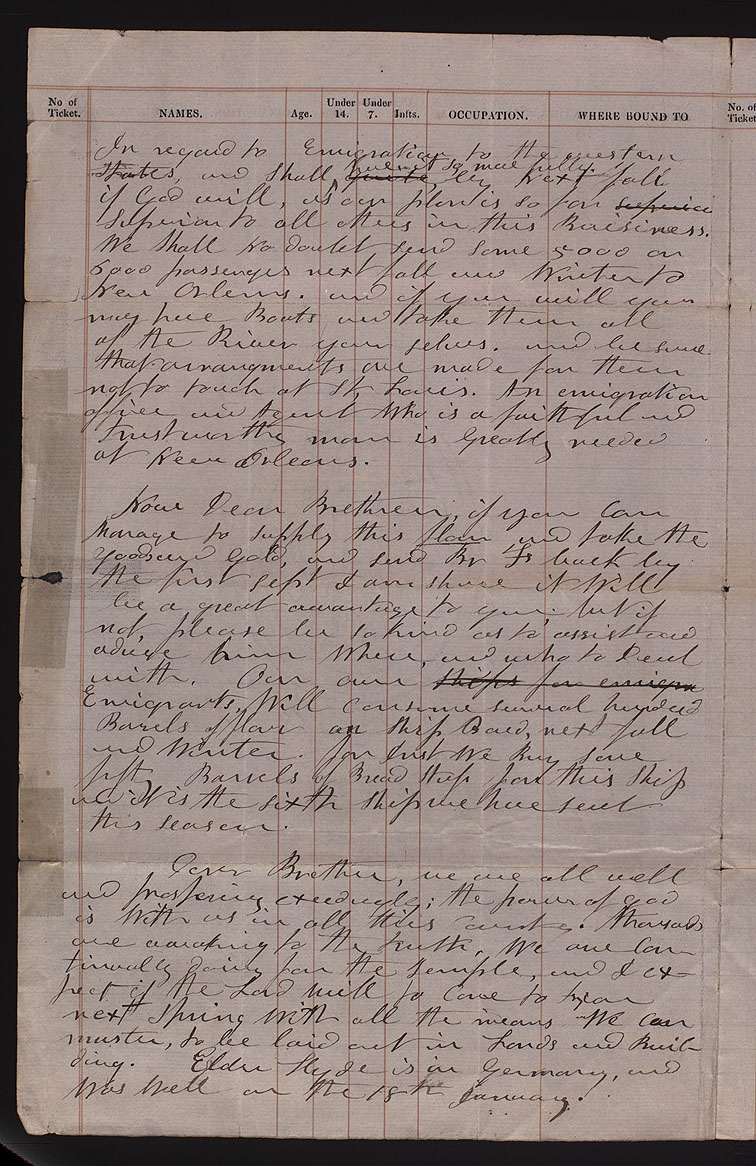 No of Ticket. NAMES. Age. Under 14. Under 7. Infts. OCCUPATION. WHERE BOUND TO No. of Ticket
In regard to Emigration to the western
States, and shall, by next fall
if God will, as our plan is so far
superior to all others in this Buisiness.
We shall no doubt send some 5000 or
6000 passengers next fall and Winter to
New Orleans. and if you will you
may hire Boats and take them all
up the River your selves. and be sure
that arrangments are made for them
not to touch at St Louis. An emigration
office and Agent who is a faithful and
Trustworthy man is Greatly needed
at New Orleans.
Now Dear Brethren, if you can
manage to supply this flour and take the
goods and Gold, and send Br Fs back by
the first Sept I am shure it Will
be a great advantage to you; but if
not, please be so kind as to assist and
advise him Where, and who to deal
with. Our own ships for emigra
Emigrants, Will consume several hundred
Barels of flour on Ship Board, next fall
and Winter. for Just We Buy some
fift Barrels of Bread Stuf for this Ship
and it is the sixth ship we have sent
this season.
Dear Brethren, we are all well
and prospering exeedingly; the power of god
is With us in all this country. thousands
are awaking to the truth, We are Con
tinually doing for the temple, and I ex=
pect if the Lord will to come to
next Spring With all the means We can
muster, to be laid out in Lands and Buil
ding. Elder Hyde is in Germany, and
Was Well on the 18th January.